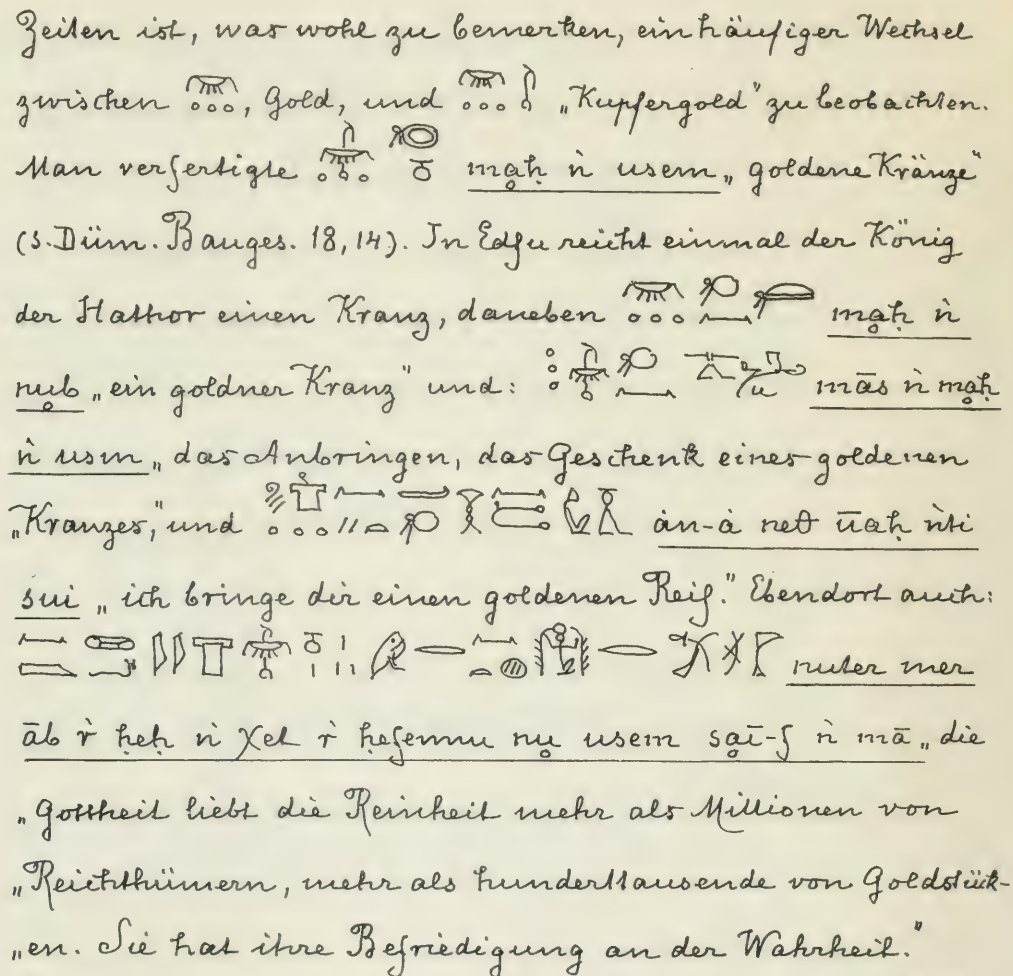 Zeiten ist, was wohl zu bemerken, ein häufiger Wechsel
zwischen , Gold, und „Kupfergold" zu beobachten.
Man verfertigte maḥ ǹ usem „goldene Kränze"
(s. Düm. Bauges. 18, 14). In Edfu reicht einmal der König
der Hathor einen Kranz, daneben maḥ ǹ
nub „ein goldner Kranz" und: mās ǹ maḥ
ǹ usm „das Anbringen, das Geschenk eines goldenen
„Kranzes," und ȧn-ȧ neθ ūaḥ ǹti
sui „ich bringe dir einen goldenen Reif." Ebendort auch:
nuter mer
āb r̀ ḥeḥ ǹ χet r̀ ḥefennu nu usem saī-f ǹ mā „die
„Gottheit liebt die Reinheit mehr als Millionen von
„Reichthümern, mehr als hunderttausende von Goldstück-
„en. Sie hat ihre Befriedigung an der Wahrheit."